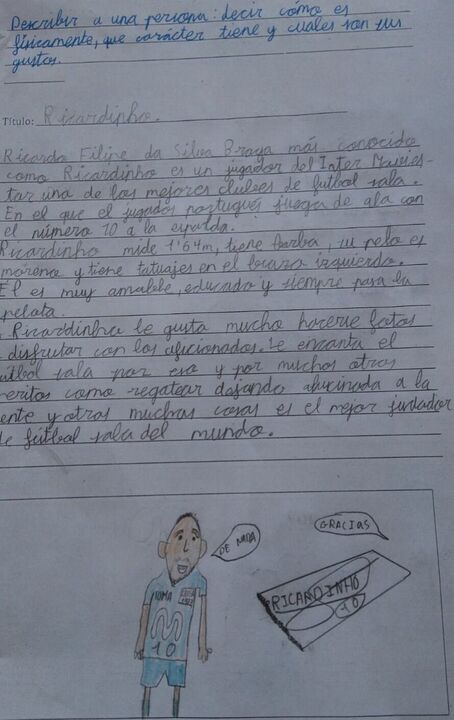 Describir a una persona: decir cómo es
físicamente, que carácter tiene y cuales son sus
gustos.
Título: Ricardinho.
Ricardo Filipe da Silva Braga más conocido
como Ricardinho es un jugador del Inter Movis-
tar una de los mejores clubes de futbol sala.
En el que el jugados portugués juega de ala con
el número 10 a la espalda.
Ricardinho mide 1'64m, tiene barba, su pelo es
moreno y tiene tatuajes en el brazo izquierdo.
Él es muy amable, educado y siempre pasa la
pelota.
Ricardinho le gusta mucho hacerse fotos
disfrutar con los aficionados. Le encanta el
futbol sala por eso y por muchos otros
meritos como regatear dejando alucinada a la
ente y otras muchas cosas es el mejor jugador
de fútbol sala del mundo.
DE NADA
GRACIAS
RICARDINHO
10
JOMA
10